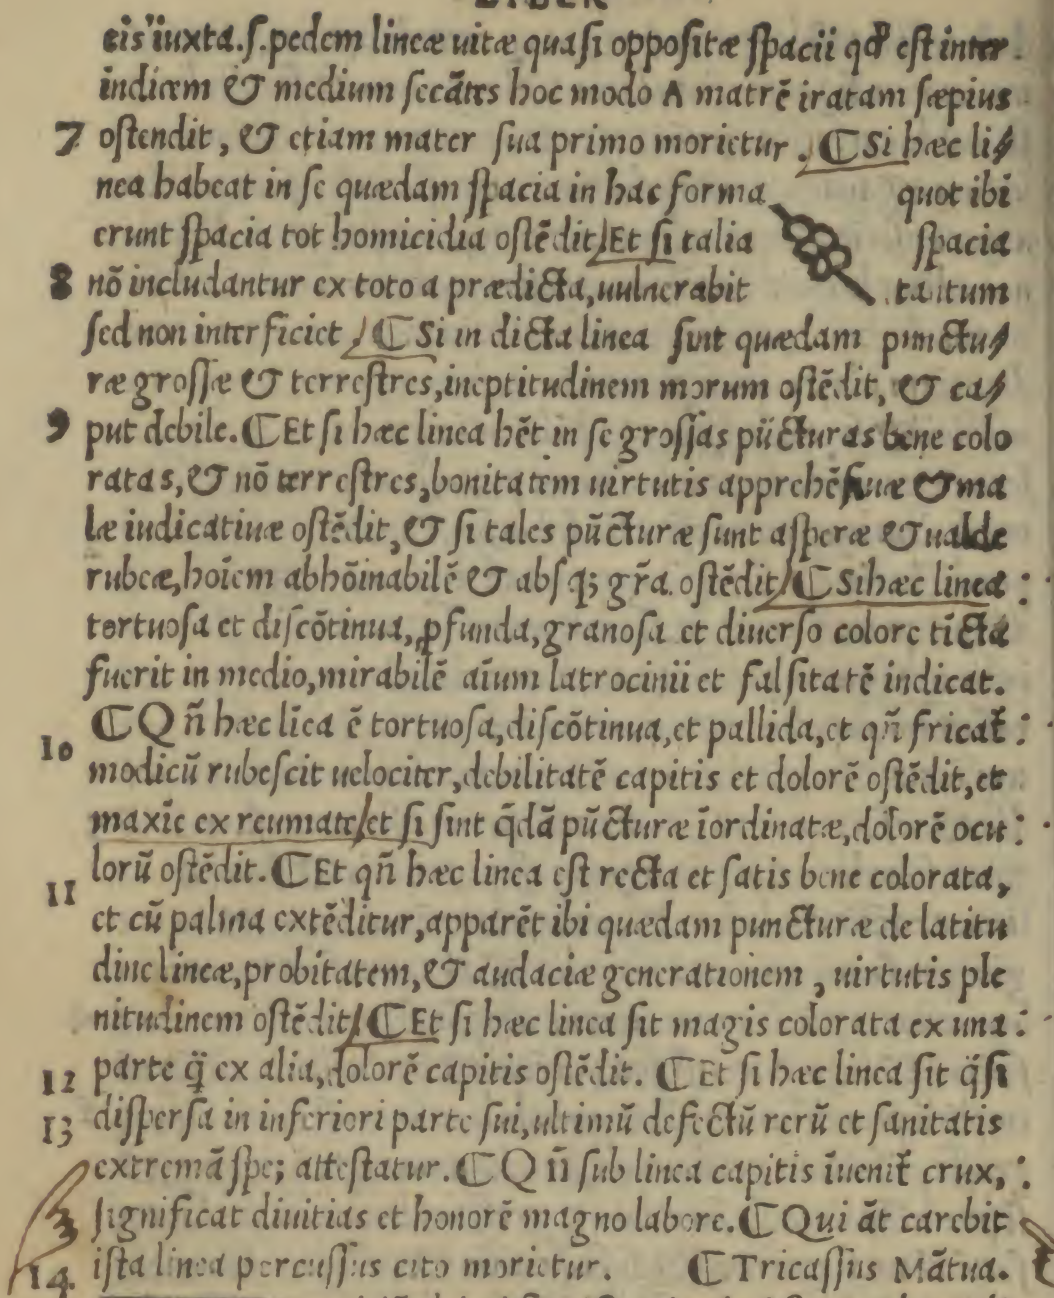 LIBER
eis iuxta.s.pedem lineæ uitæ quasi oppositæ spacii qđ est inter
indicem & medium secātes hoc modo A matrē iratam sæpius
7 ostendit, & etiam mater sua primo morietur. ⸿Si hæc li/
nea habeat in se quædam spacia in hac forma quot ibi
erunt spacia tot homicidia ostēdit/Et si talia spacia
8 nō includantur ex toto a prædicta,uulnerabit tantum
sed non interficiet/⸿Si in dicta linea sint quædam punctu/
ræ grossæ & terrestres,ineptitudinem morum ostēdit, & ca/
9 put debile.⸿Et si hæc linea hēt in se grossas pūcturas bene colo
ratas,& nō terrestres,bonitatem uirtutis apprehēsiuæ & ma
læ iudicatiuæ ostēdit,& si tales pūcturæ sunt asperæ & ualde
rubeæ,hoīem abhōinabilē & absq; gr̄a ostēdit/⸿Si hæc linea
tortuosa et discōtinua,ꝓfunda,granosa et diuerso colore tīcta
fuerit in medio,mirabilē aīum latrocinii et falsitatē indicat.
10 ⸿Qn̄ hæc līea ē tortuosa,discōtinua,et pallida,et qn̄ fricat̄
modicū rubescit uelociter,debilitatē capitis et dolorē ostēdit,et
maxīe ex reumate/et si sint q̄dā pūcturæ īordinatæ,dolorē ocu
11 lorū ostēdit.⸿Et qn̄ hæc linea est recta et satis bene colorata,
et cū palma extēditur,apparēt ibi quædam puncturæ de latitu
dine lineæ,probitatem,& audaciæ generationem, uirtutis ple
nitudinem ostēdit/⸿Et si hæc linea sit magis colorata ex una
12 parte q̄ ex alia,dolorē capitis ostēdit. ⸿Et si hæc linea sit q̄si
13 dispersa in inferiori parte sui,ultimū defectū rerū et sanitatis
extremā spe; attestatur.⸿Qn̄ sub linea capitis īuenit̄ crux,
significat diuitias et honorē magno labore.⸿Qui āt carebit
14. ista linea percussus cito morietur. ⸿Tricassus Mātua.